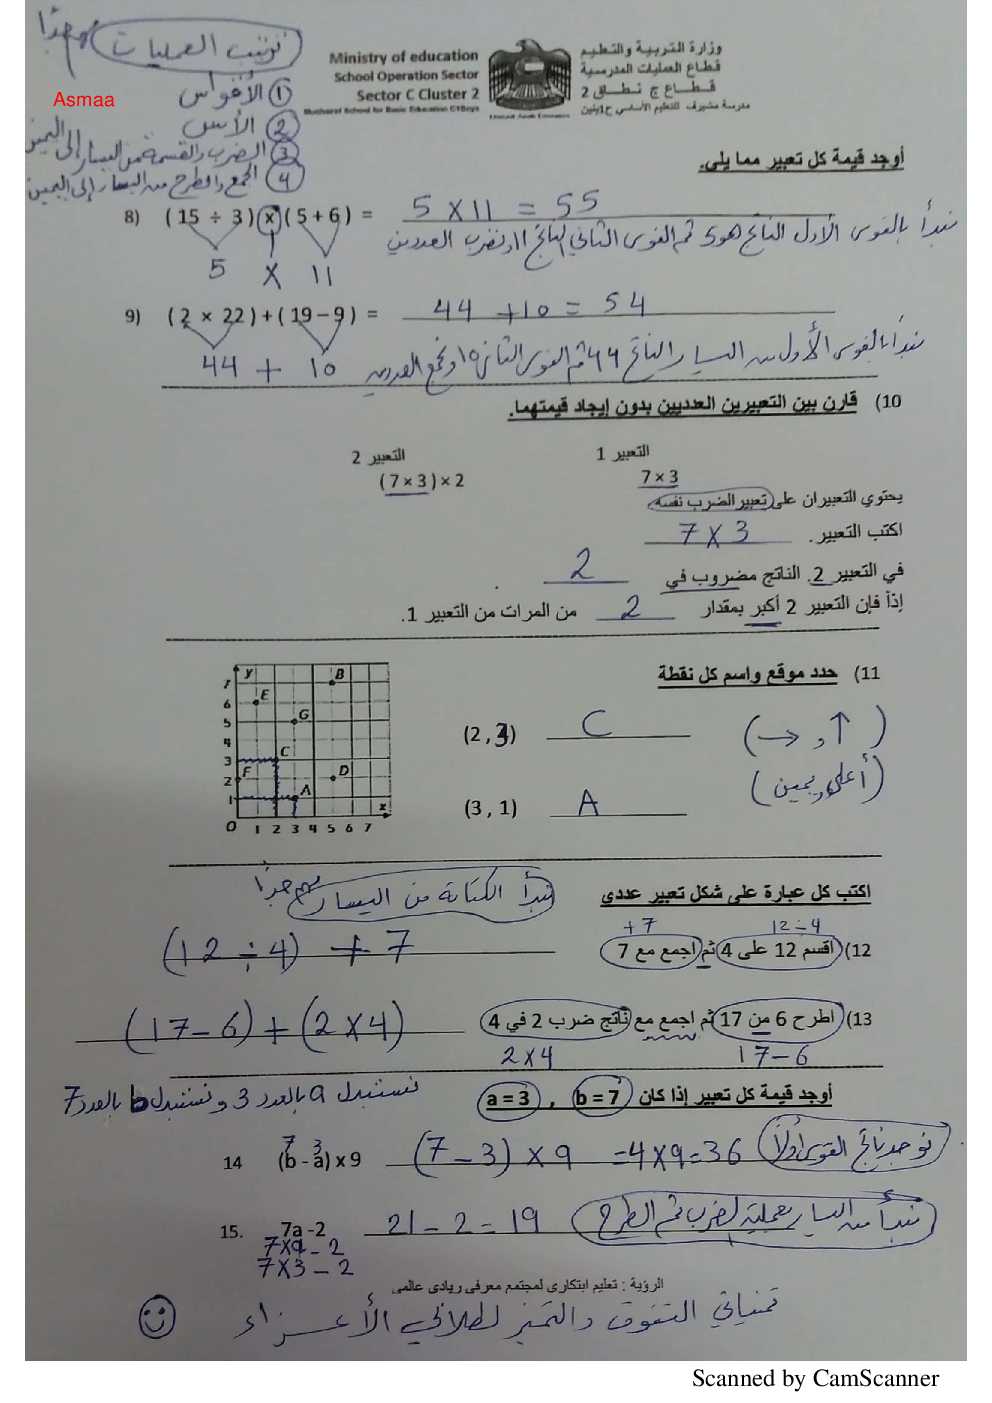 ترتيب العمليات مهم جدًا
Asmaa
① الأقواس
② الأسس
③ الضرب والقسمة من اليسار إلى اليمين
④ الجمع والطرح من اليسار إلى اليمين
Ministry of education
School Operation Sector
Sector C Cluster 2
Musheref School for Basic Education C1Boys
United Arab Emirates
وزارة التربية والتعليم
قطاع العمليات المدرسية
قطاع ج نطاق 2
مدرسة مشيرف للتعليم الأساسي ح1بنين
أوجد قيمة كل تعبير مما يلي.
8) (15 ÷ 3) x (5 + 6) = 5 X 11 = 55
نبدأ بالقوس الأول الناتج هو 5 ثم القوس الثاني الناتج 11 ونضرب العددين
5 X 11
9) (2 × 22) + (19 – 9) = 44 + 10 = 54
نبدأ بالقوس الأول من اليسار والناتج 44 ثم القوس الثاني 10 ونجمع العددين
44 + 10
10) قارن بين التعبيرين العدديين بدون إيجاد قيمتهما.
التعبير 1 التعبير 2
7 × 3 (7 × 3) × 2
يحتوي التعبيران على تعبير الضرب نفسه.
اكتب التعبير. 7 X 3
في التعبير 2. الناتج مضروب في 2
إذاً فإن التعبير 2 أكبر بمقدار 2 من المرات من التعبير 1.
11) حدد موقع واسم كل نقطة
y 7 6 5 4 3 2 1 O 1 2 3 4 5 6 7 x
B E G C F D A
(2 , 3) C (→ , ↑)
(3 , 1) A (أعلى, يمين)
نبدأ الكتابة من اليسار مهم جدًا
اكتب كل عبارة على شكل تعبير عددي
+ 7 12 ÷ 4
12) اقسم 12 على 4 ثم اجمع مع 7 (12 ÷ 4) + 7
13) اطرح 6 من 17 ثم اجمع مع ناتج ضرب 2 في 4 (17 – 6) + (2 X 4)
2 X 4 17 – 6
أوجد قيمة كل تعبير إذا كان b = 7 , a = 3
نستبدل a بالعدد 3 ونستبدل b بالعدد 7
7 3
14 (b - a) x 9 (7 – 3) X 9 = 4 X 9 = 36 نوجد ناتج القوس أولًا
15. 7a -2 21 – 2 = 19 نبدأ من اليسار بعملية الضرب ثم الطرح
7 X a – 2
7 X 3 – 2
الرؤية : تعليم ابتكاري لمجتمع معرفي ريادي عالمي
تمنياتي التفوق والتميز لطلابي الأعزاء
Scanned by CamScanner